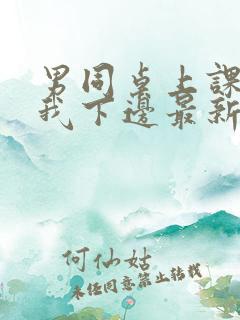 男同桌上課
我下邊最新
何仙姑
未经同意禁止转载